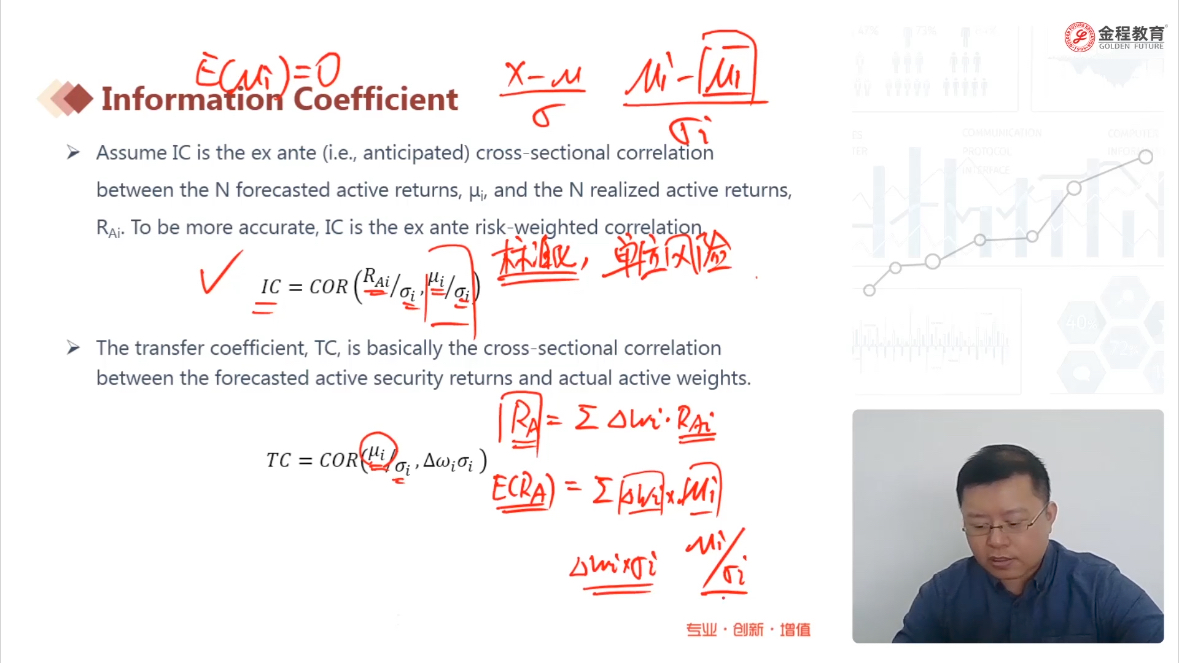 金程教育
GOLDEN FUTURE
E(μi)=0
x-μ/σ
μi-μi/σi
Information Coefficient
➢ Assume IC is the ex ante (i.e., anticipated) cross-sectional correlation
between the N forecasted active returns, μi, and the N realized active returns,
RAi. To be more accurate, IC is the ex ante risk-weighted correlation.
标准化, 单位风险
IC = COR(RAi/σi, μi/σi)
➢ The transfer coefficient, TC, is basically the cross-sectional correlation
between the forecasted active security returns and actual active weights.
RA = Σ Δwi·RAi
TC = COR(μi/σi, Δωiσi)
E(RA) = Σ Δwi×μi
Δwi×σi μi/σi
专业·创新·增值